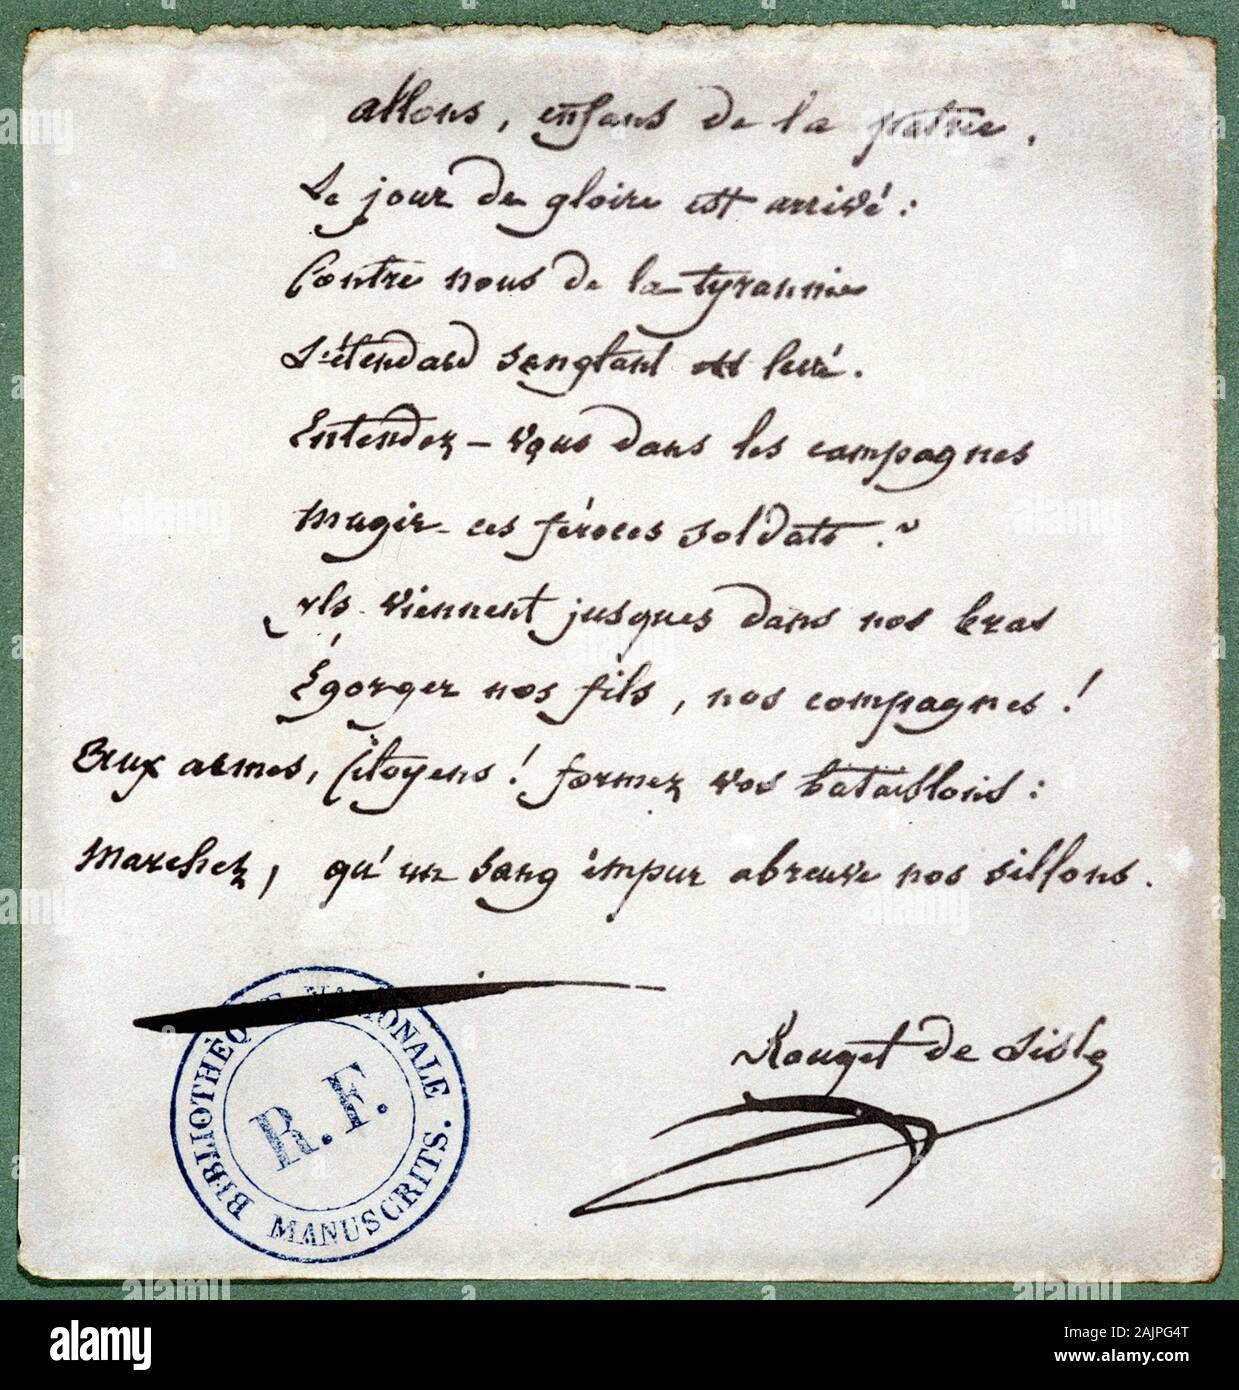 allons, enfans de la patrie.
Le jour de gloire est arrivé :
Contre nous de la tyrannie
L'étendard sanglant est levé.
Entendez-vous dans les campagnes
Mugir ces féroces soldats ?
Ils viennent jusques dans nos bras
Égorger nos fils, nos compagnes !
Aux armes, Citoyens ! formez vos bataillons :
Marchez, qu'un sang impur abreuve nos sillons.
Rouget de Lisle
BIBLIOTHÈQUE NATIONALE
R.F.
MANUSCRITS.
alamy
Image ID: 2AJPG4T
www.alamy.com